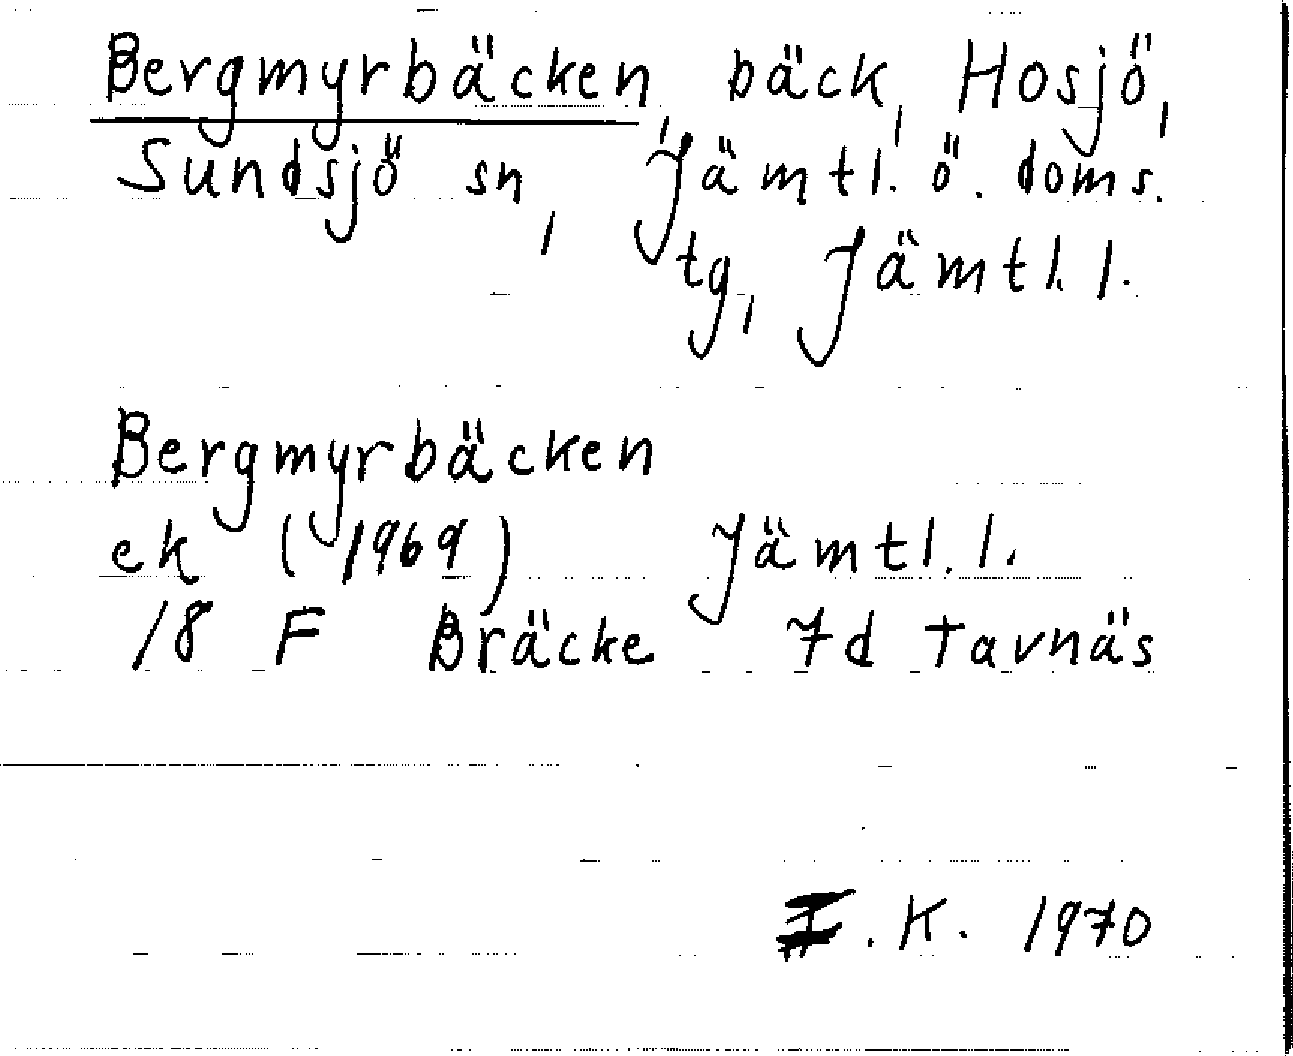 Bergmyrbäcken, bäck, Hosjö,
Sundsjö sn, Jämtl. ö. doms.
tg, Jämtl. l.
Bergmyrbäcken
ek (1969) Jämtl. l.
18 F Bräcke 7d Tavnäs
I. K. 1970